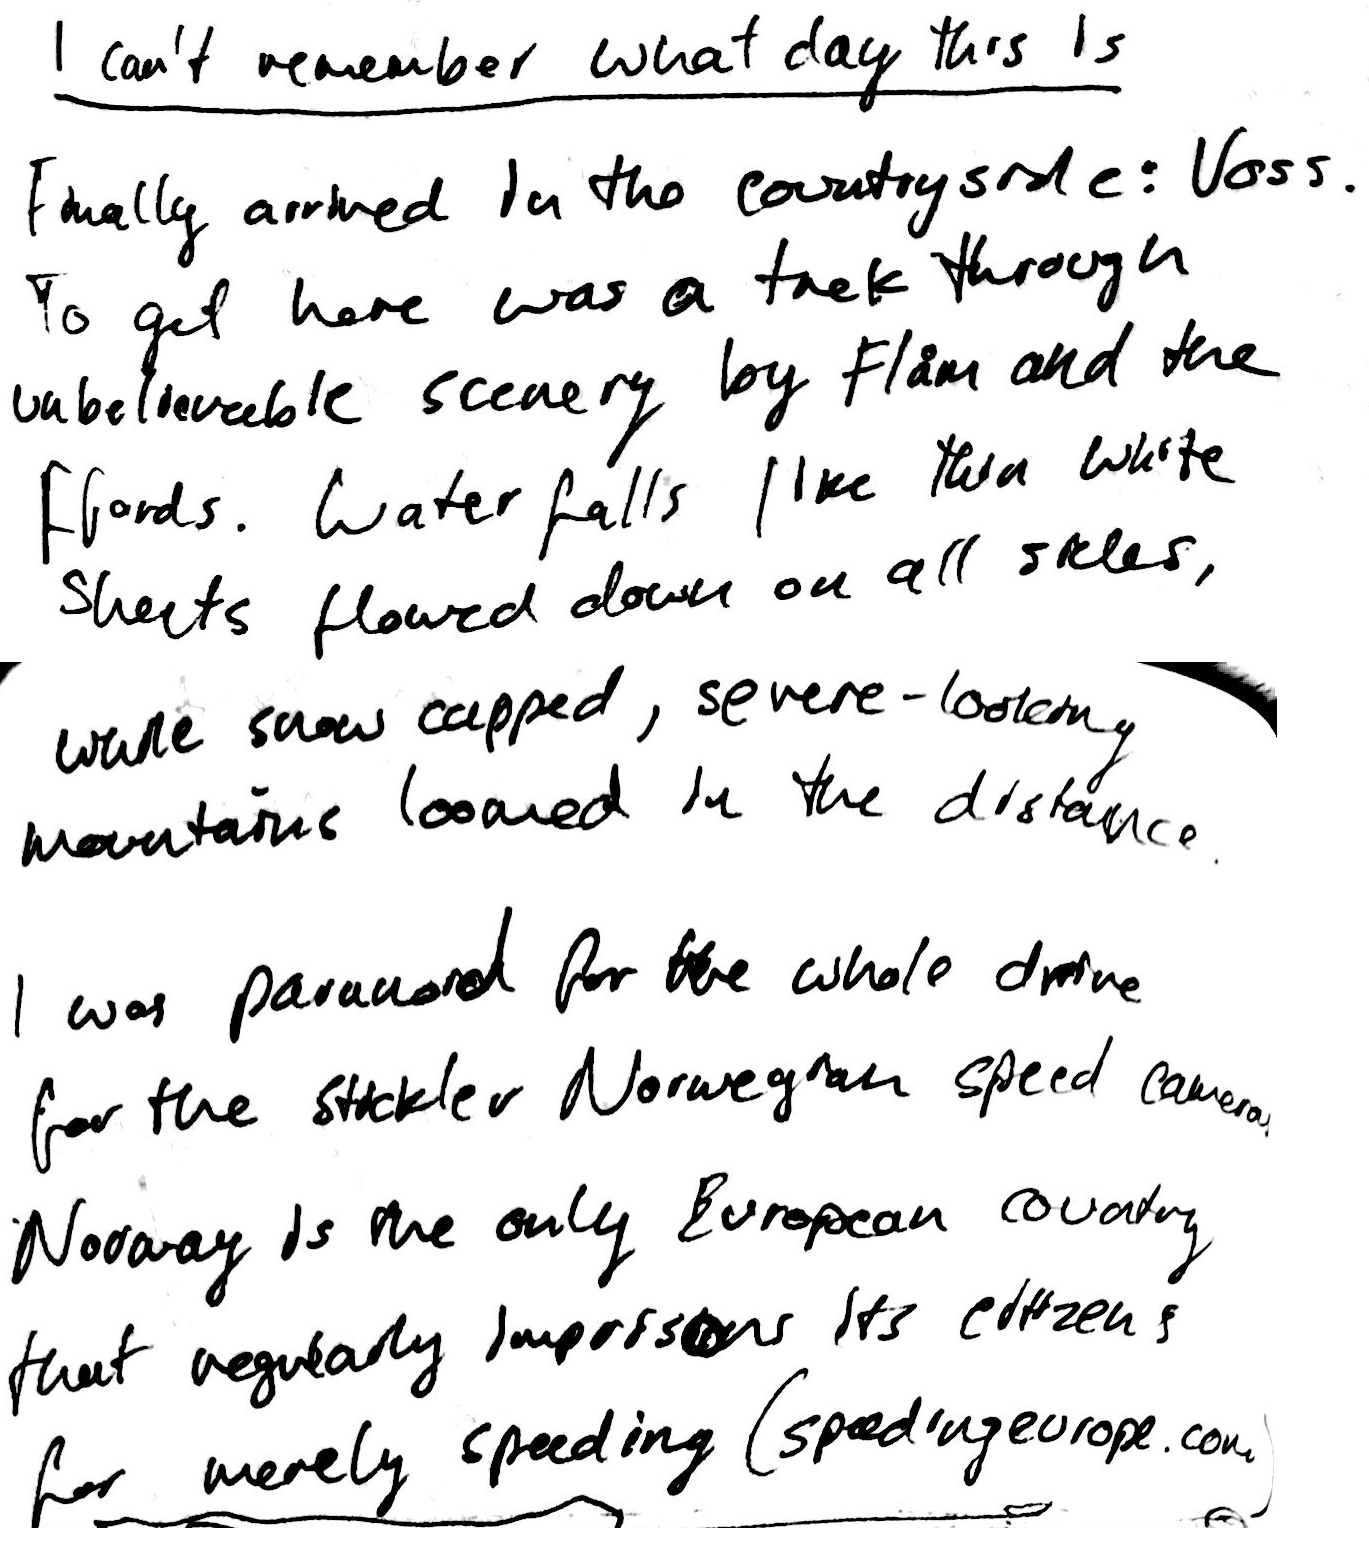 I can't remember what day this is
Finally arrived in the countryside: Voss.
To get here was a trek through
unbelieveable scenery by Flåm and the
Ffords. Waterfalls like thin white
Sheets flowed down on all sides,
while snow capped, severe-looking
mountains loomed in the distance.
I was paranoid for the whole drive
for the stickler Norwegian speed cameras
Norway is the only European country
that regularly imprisons its citizens
for merely speeding (speedingeurope.com)